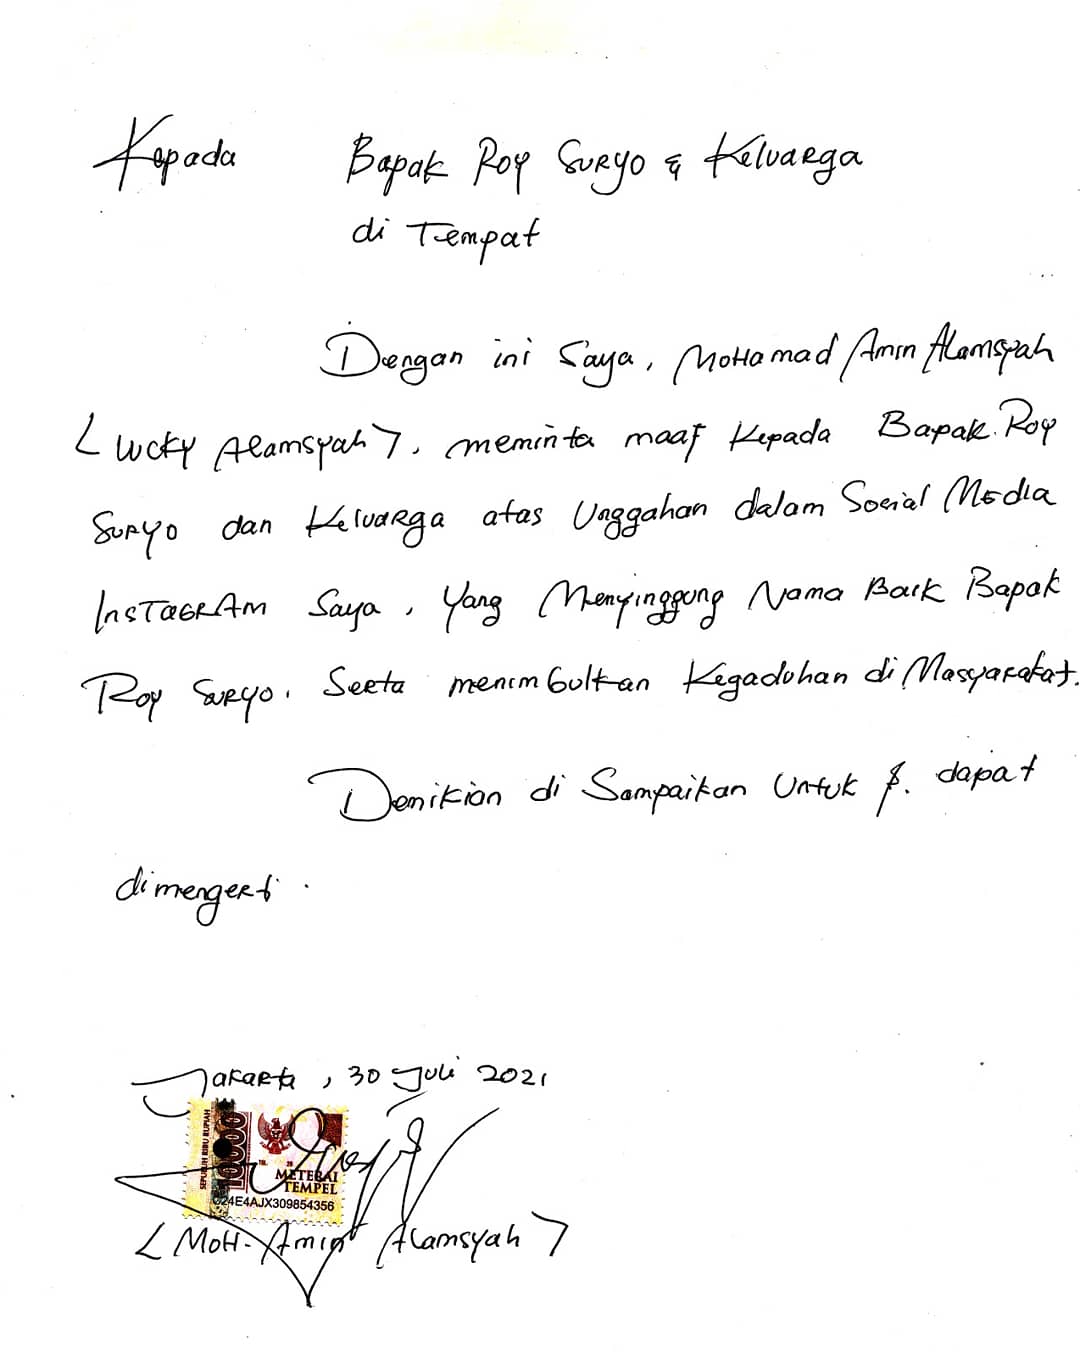 Kepada Bapak Roy Suryo & Keluarga
di Tempat
Dengan ini Saya, Mohamad Amin Alamsyah
(Lucky Alamsyah), meminta maaf Kepada Bapak Roy
Suryo dan Keluarga atas Unggahan dalam Social Media
Instagram Saya, Yang Menyinggung Nama Baik Bapak
Roy Suryo. Serta menimbulkan Kegaduhan di Masyarakat.
Demikian di Sampaikan Untuk dapat
dimengerti.
Jakarta, 30 Juli 2021
SEPULUH RIBU RUPIAH
10000
METERAI
TEMPEL
24E4AJX309854356
(Moh. Amin Alamsyah)